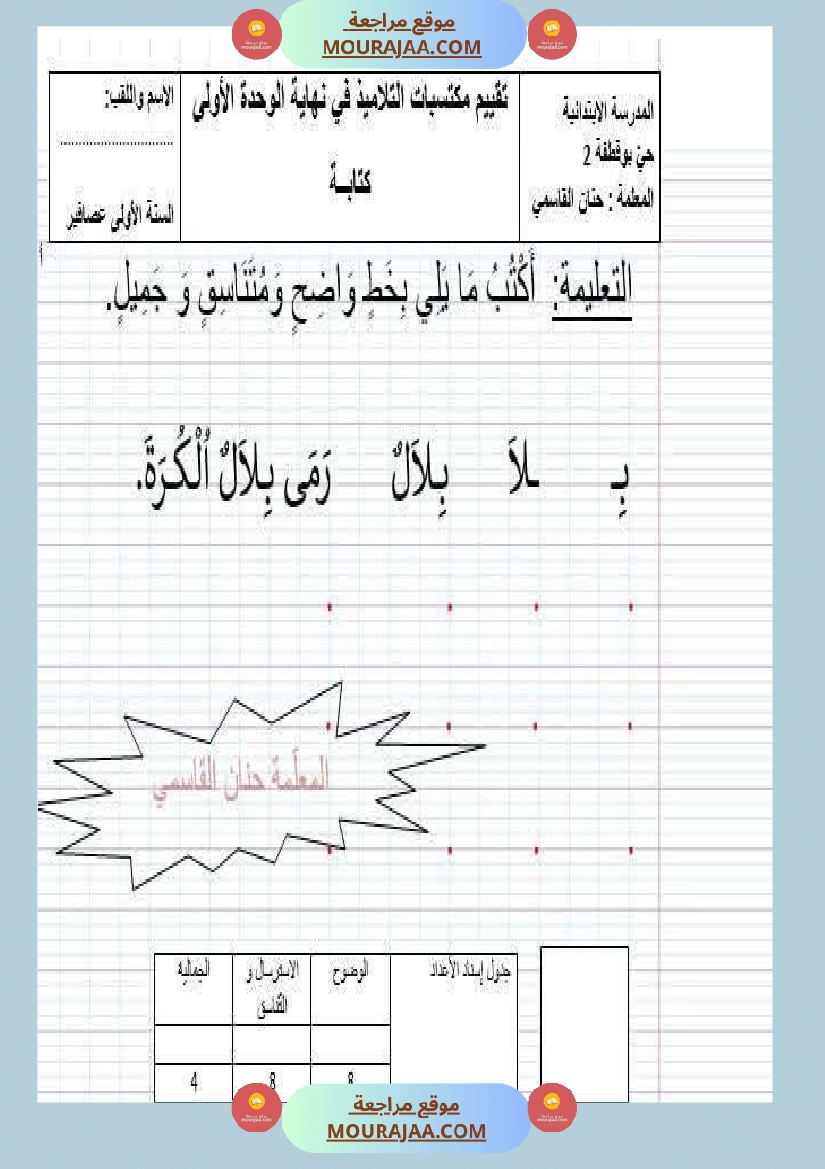 موقع مراجعة
MOURAJAA.COM
المدرسة الابتدائية
حيّ بوقطفة 2
المعلمة : حنان القاسمي
تقييم مكتسبات التلاميذ في نهاية الوحدة الأولى
كتابــة
الاسم واللقب:
..............................
السنة الأولى عصافير
التعليمة: أَكْتُبُ مَا يَلِي بِخَطٍّ وَاضِحٍ وَمُتَنَاسِقٍ وَ جَمِيلٍ.
بِـ ـلاَ بِـلاَلٌ رَمَى بِـلاَلٌ اُلْكُـرَةَ.
المعلّمة حنان القاسمي
جدول إسناد الأعداد الوضوح الاسترسال و التّناسق الجمالية
8 8 4
موقع مراجعة
MOURAJAA.COM